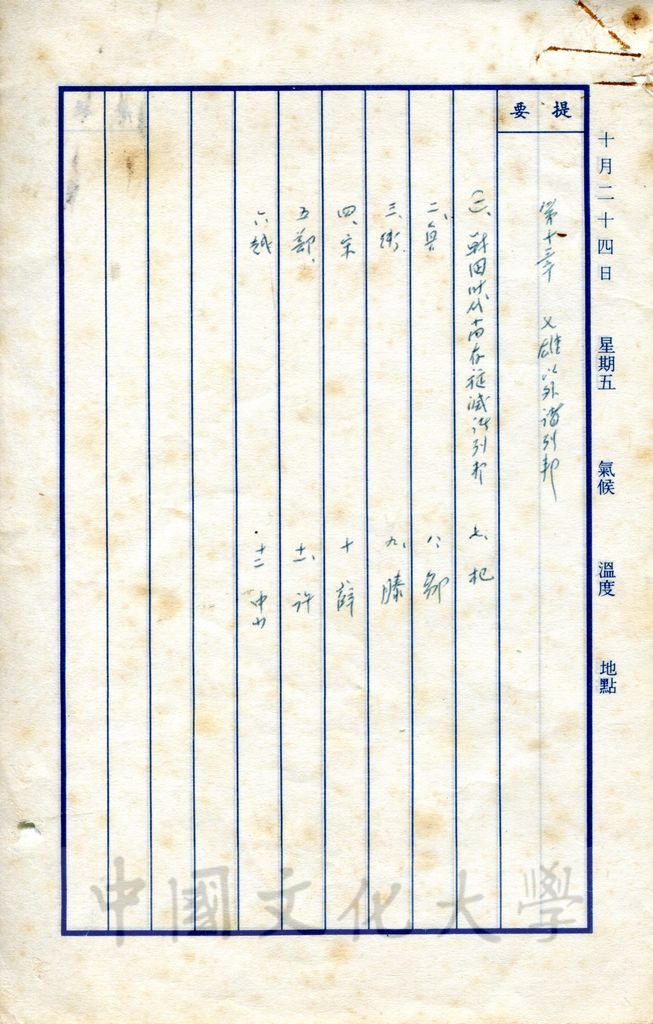 十月二十四日 星期五 氣候 溫度 地點
提要
第十三章 七雄以外諸列邦
(一)、戰国时代尚存旋滅諸列邦
二、魯
三、衛
四、宋
五、鄭
六、越
七、杞
八、鄒
九、滕
十 薛
十一、許
十二 中山
中國文化大學